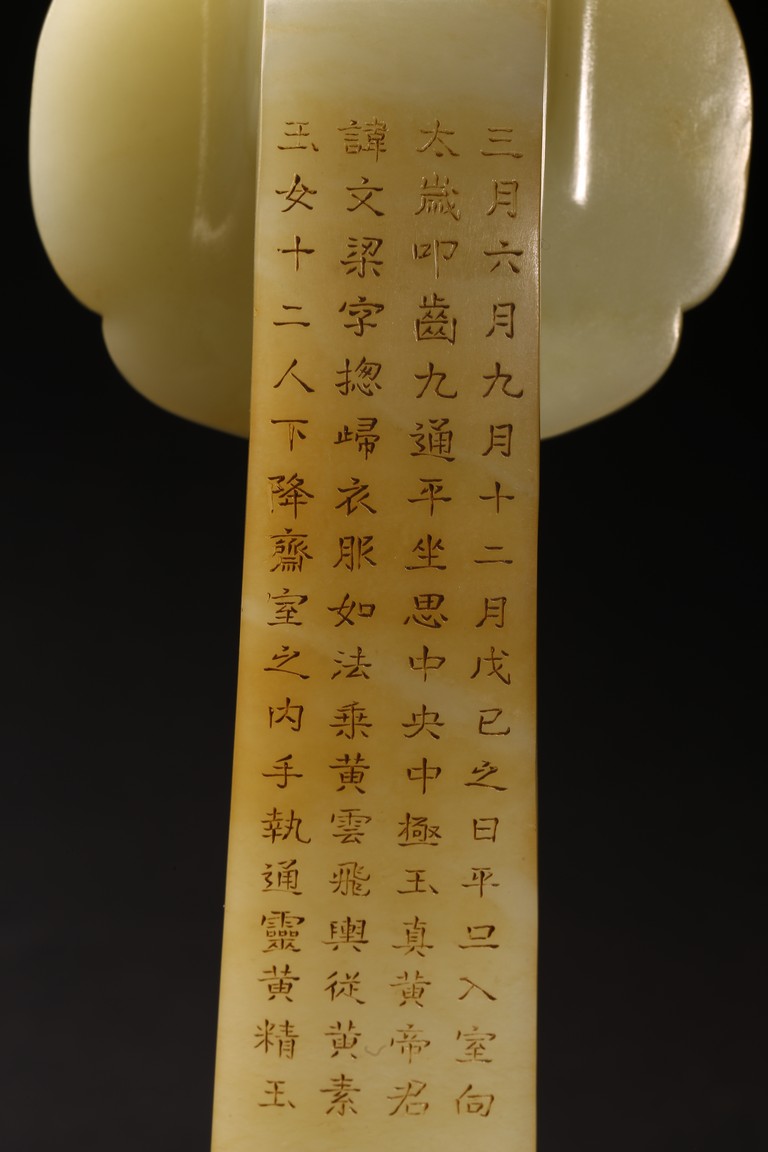 三月六月九月十二月戊己之日平旦入室向
太歲叩齒九通平坐思中央中極玉真黃帝君
諱文梁字揔歸衣服如法乘黃雲飛輿從黃素
玉女十二人下降齋室之內手執通靈黃精玉